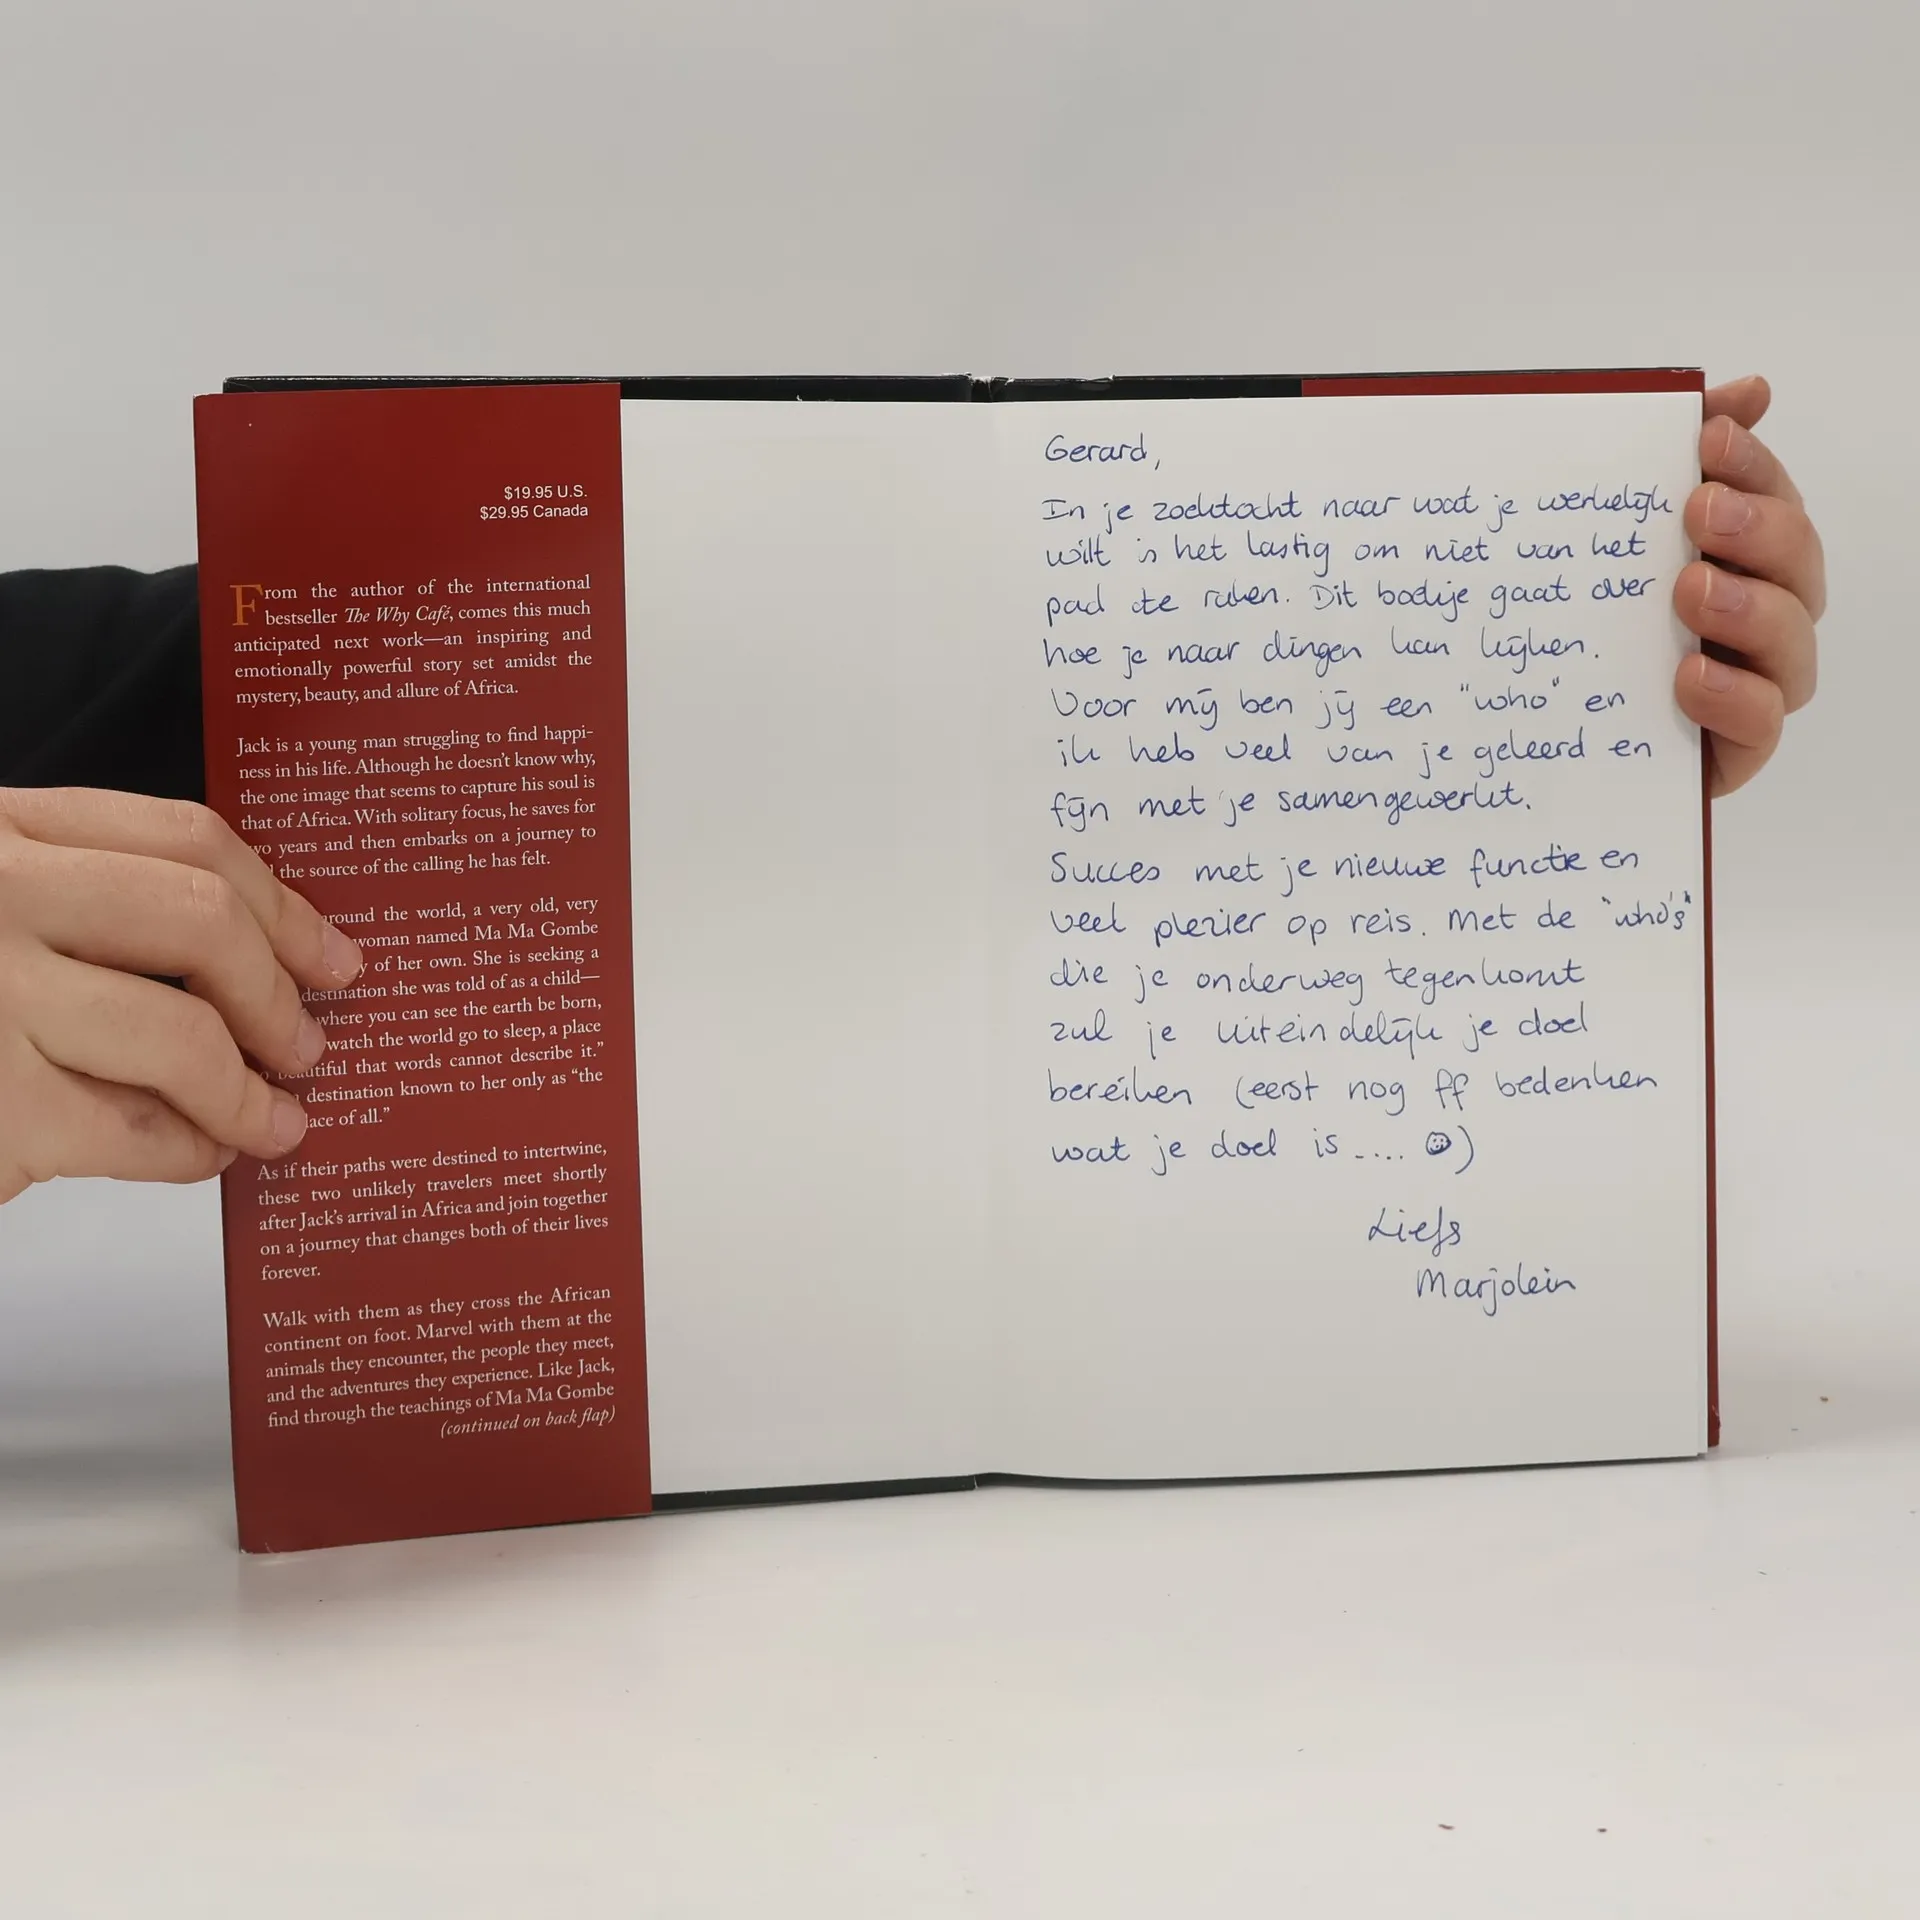 $19.95 U.S.
$29.95 Canada
From the author of the international
bestseller The Why Café, comes this much
anticipated next work—an inspiring and
emotionally powerful story set amidst the
mystery, beauty, and allure of Africa.
Jack is a young man struggling to find happi-
ness in his life. Although he doesn't know why,
the one image that seems to capture his soul is
that of Africa. With solitary focus, he saves for
years and then embarks on a journey to
the source of the calling he has felt.
around the world, a very old, very
woman named Ma Ma Gombe
of her own. She is seeking a
destination she was told of as a child—
where you can see the earth be born,
watch the world go to sleep, a place
that words cannot describe it."
destination known to her only as "the
of all."
As if their paths were destined to intertwine,
these two unlikely travelers meet shortly
after Jack's arrival in Africa and join together
on a journey that changes both of their lives
forever.
Walk with them as they cross the African
continent on foot. Marvel with them at the
animals they encounter, the people they meet,
and the adventures they experience. Like Jack,
find through the teachings of Ma Ma Gombe
(continued on back flap)
Gerard,
In je zoektocht naar wat je werkelijk
wilt is het lastig om niet van het
pad te raken. Dit boekje gaat over
hoe je naar dingen kan kijken.
Voor mij ben jij een "who" en
ik heb veel van je geleerd en
fijn met je samengewerkt.
Succes met je nieuwe functie en
veel plezier op reis. Met de "who's"
die je onderweg tegenkomt
zul je uiteindelijk je doel
bereiken (eerst nog ff bedenken
wat je doel is ..... ☺)
Liefs
Marjolein